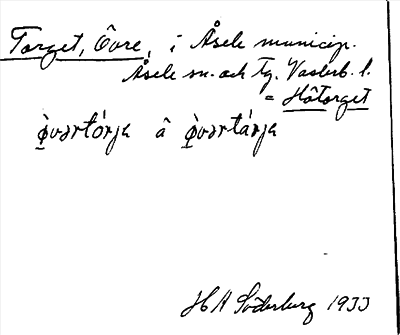 Torget, Övre, i Åsele municip.
Åsele sn. och Tg. Vasterb. l.
= Hötorget
ò̱vərtórjə å ò̱vərtárjə
H H Söderberg 1933